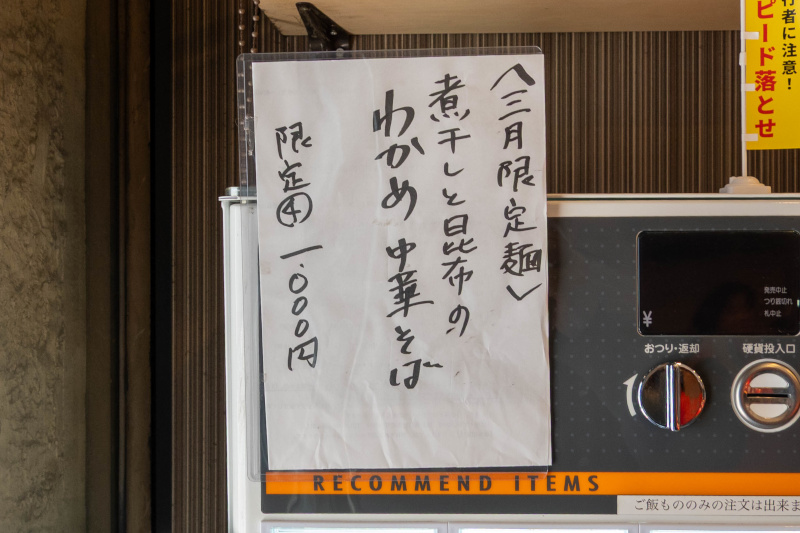 〈三月限定麺〉
煮干しと昆布の
わかめ中華そば
限定④ 1.000円
行者に注意!
ピード落とせ
発売中止
つり銭切れ
札中止
¥
おつり・返却
硬貨投入口
RECOMMEND ITEMS
ご飯もののみの注文は出来ま